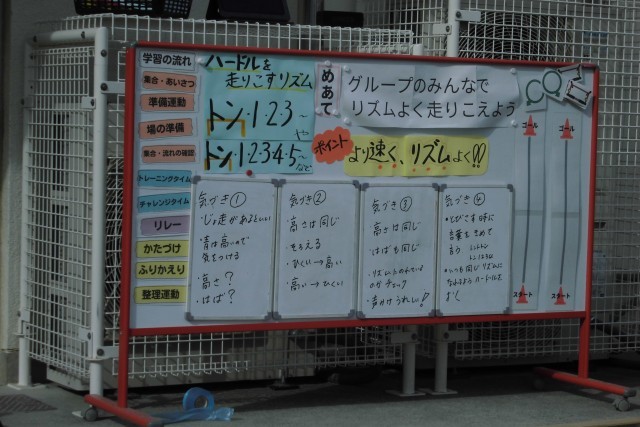 学習の流れ
集合・あいさつ
準備運動
場の準備
集合・流れの確認
トレーニングタイム
チャレンジタイム
リレー
かたづけ
ふりかえり
整理運動
ハードルを
走りこすリズム
トン・1・2・3〜
や
トン・1・2・3・4・5〜
など
めあて
グループのみんなで
リズムよく走りこえよう
ポイント
より速く、リズムよく!!
気づき①
・じょ走があるといい
・青は高いので
気をつける
・高さ?
・はば?
気づき②
高さは同じ
もらえる
・ひくい→高い
高い→ひくい
気づき③
高さは同じ
はばも同じ
のかチェック
・声かけうれしい!
気づき④
・とびこす時に
言葉をきめて
言う
・いつも同じリズムに
ゴール
ゴール
スタート
スタート